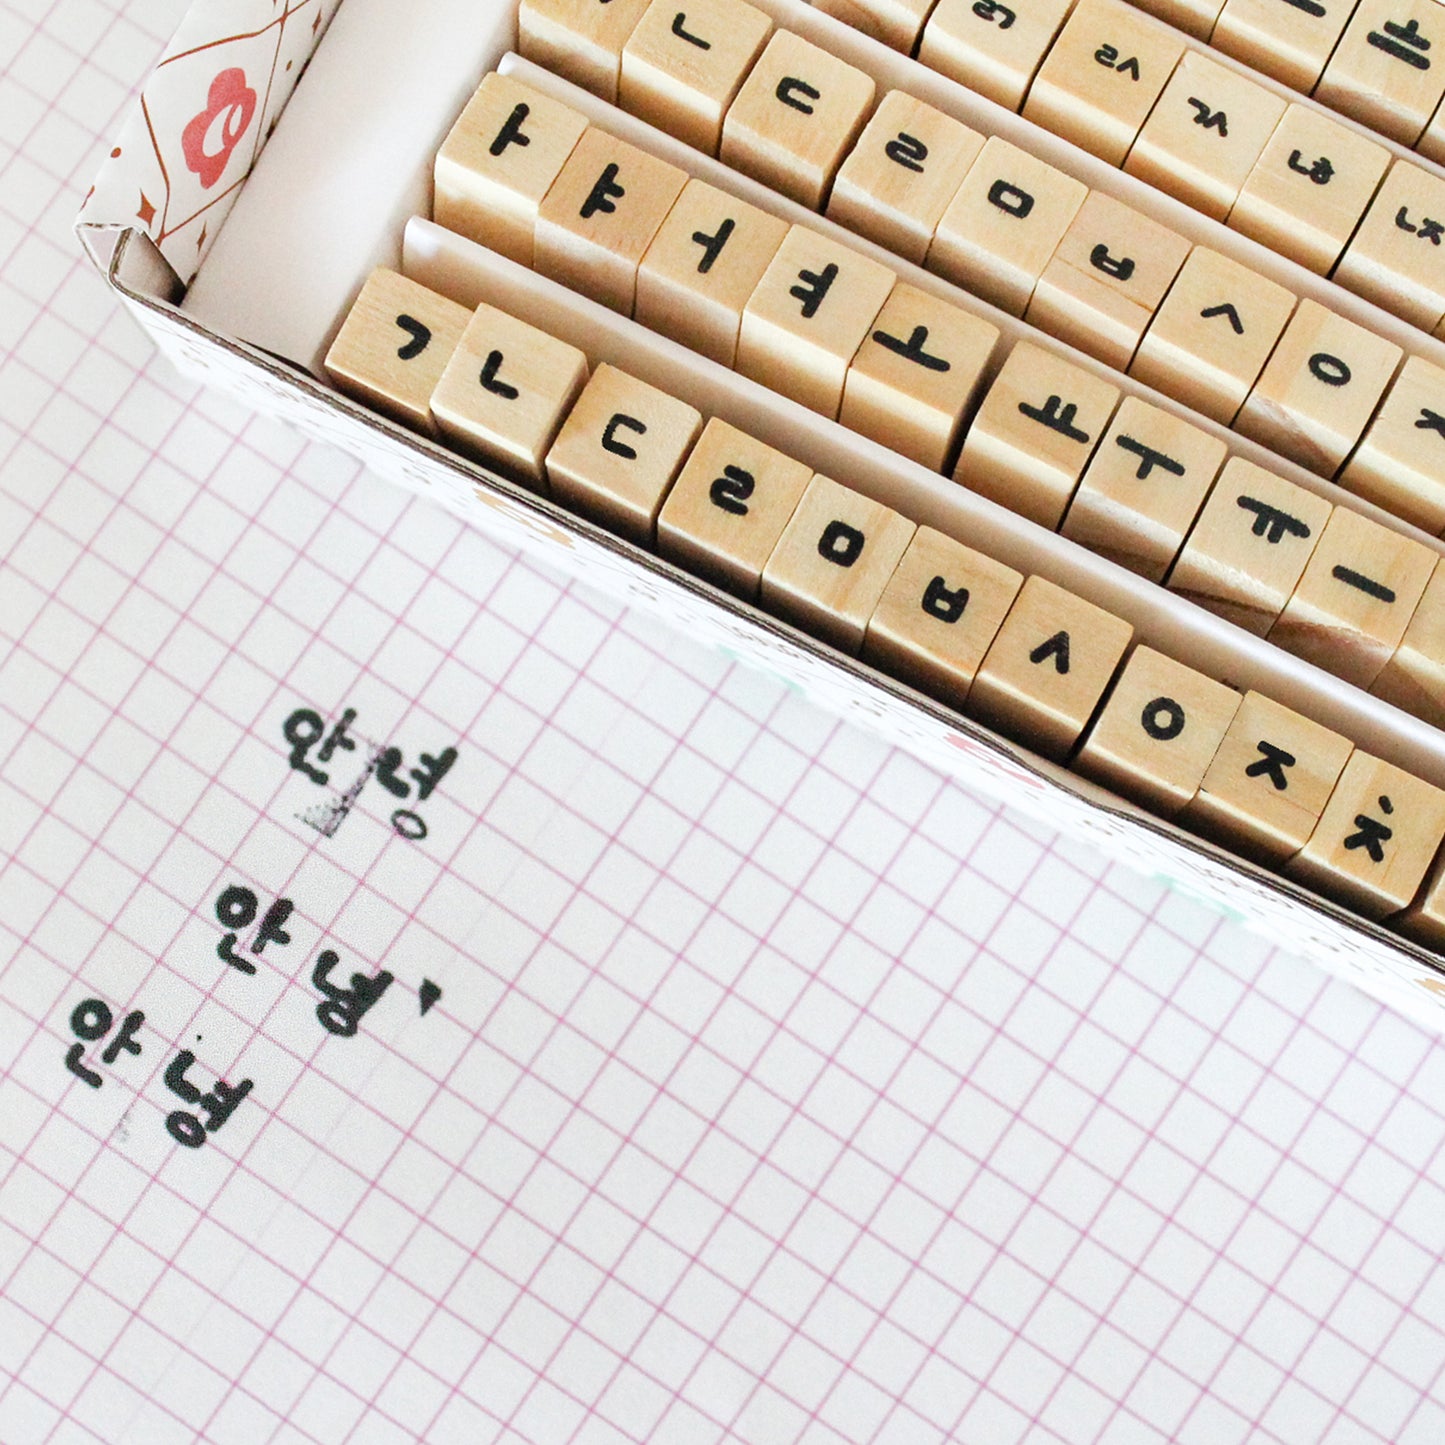 ㄴ ㄷ ㄹ ㅁ ㅂ ㅅ ㅇ
ㅏ ㅑ ㅓ ㅕ ㅗ ㅛ ㅜ ㅠ ㅡ
ㄱ ㄴ ㄷ ㄹ ㅁ ㅂ ㅅ ㅇ ㅈ ㅊ
안녕
안녕
안녕